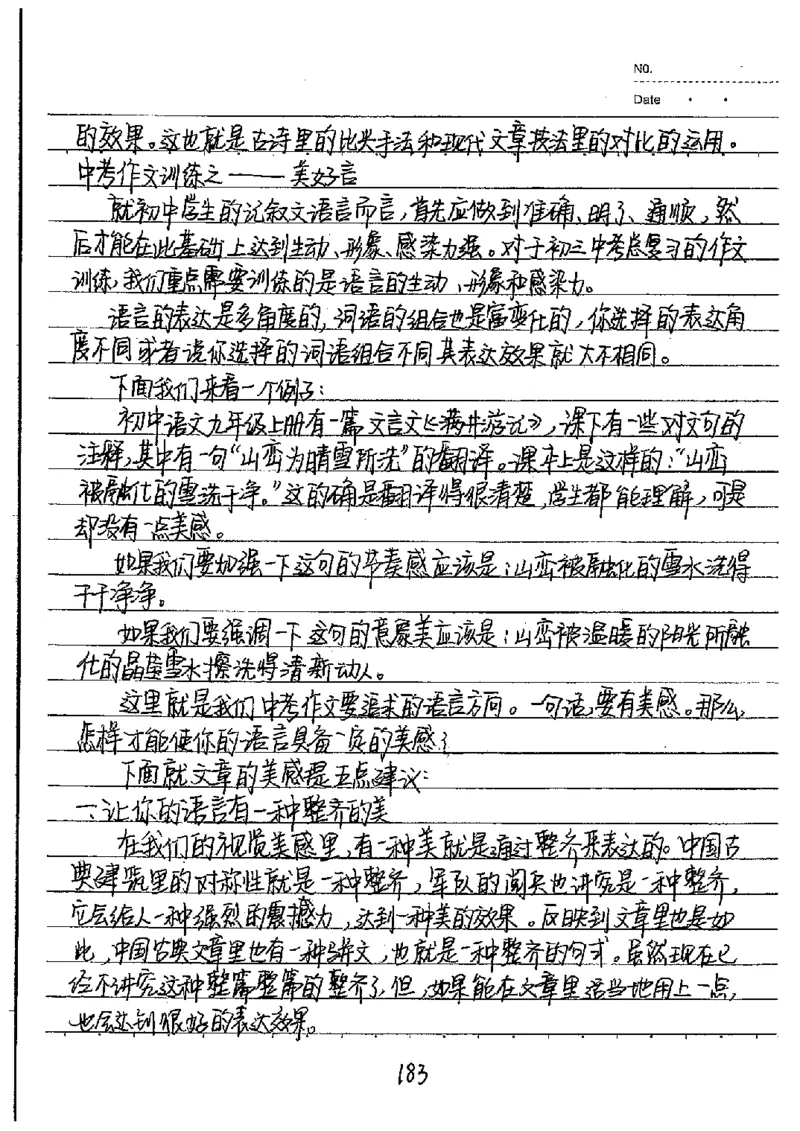 No.
Date
的效果。这也就是古诗里的比类手法和现代文章技法里的对比的运用。
中考作文训练之——美好言
就初中学生的记叙文语言而言,首先应做到准确、明了、通顺,然
后才能在此基础上达到生动、形象、感染力强。对于初三中考总复习的作文
训练,我们重点需要训练的是语言的生动、形象和感染力。
语言的表达是多角度的,词语的组合也是富变化的,你选择的表达角
度不同或者说你选择的词语组合不同其表达效果就大不相同。
下面我们来看一个例子:
初中语文九年级上册有一篇文言文《满井游记》,课下有一些对文句的
注释,其中有一句“山峦为晴雪所洗”的翻译。课本上是这样的:“山峦
被融化的雪洗干净。”这的确是翻译得很清楚,学生都能理解,可是
却没有一点美感。
如果我们要加强一下这句的节奏感应该是:山峦被融化的雪水洗得
干干净净。
如果我们要强调一下这句的意象美应该是:山峦被温暖的阳光所融
化的晶莹雪水擦洗得清新动人。
这里就是我们中考作文要追求的语言方向。一句话,要有美感。那么,
怎样才能使你的语言具备一定的美感?
下面就文章的美感提五点建议:
一、让你的语言有一种整齐的美
在我们的视觉美感里,有一种美就是通过整齐来表达的。中国古
典建筑里的对称性就是一种整齐,军队的阅兵也讲究是一种整齐,
它会给人一种强烈的震撼力,达到一种美的效果。反映到文章里也是如
此,中国古典文章里也有一种骈文,也就是一种整齐的句式。虽然现在已
经不讲究这种整篇整篇的整齐了,但,如果能在文章里适当地用上一点,
也会达到很好的表达效果。
183